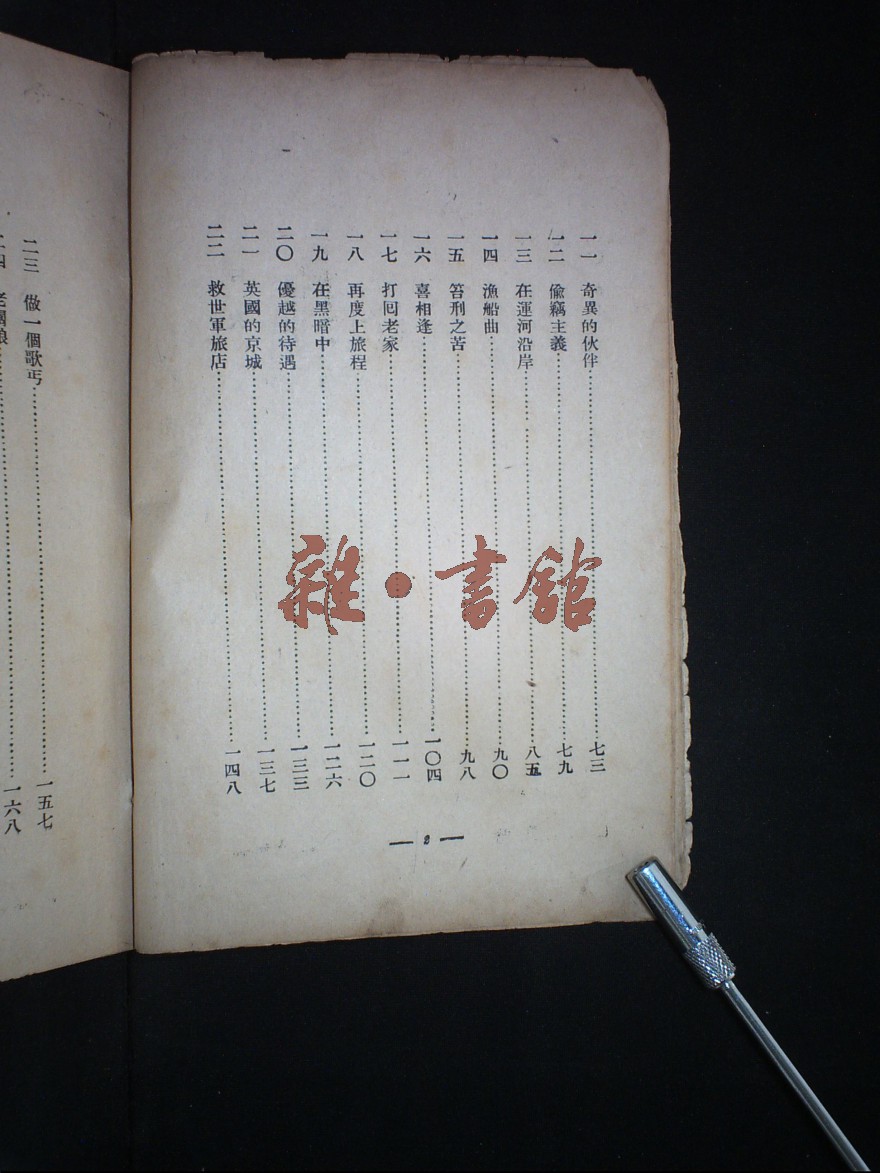 一一 奇異的伙伴……七三
一二 偷竊主義……七九
一三 在運河沿岸……八五
一四 漁船曲……九〇
一五 笞刑之苦……九八
一六 喜相逢……一〇四
一七 打回老家……一一一
一八 再度上旅程……一二〇
一九 在黑暗中……一二六
二〇 優越的待遇……一三三
二一 英國的京城……一三七
二二 救世軍旅店……一四八
— 2 —
二三 做一個歌丐……一五七
二四 老……一六八
雜·書館